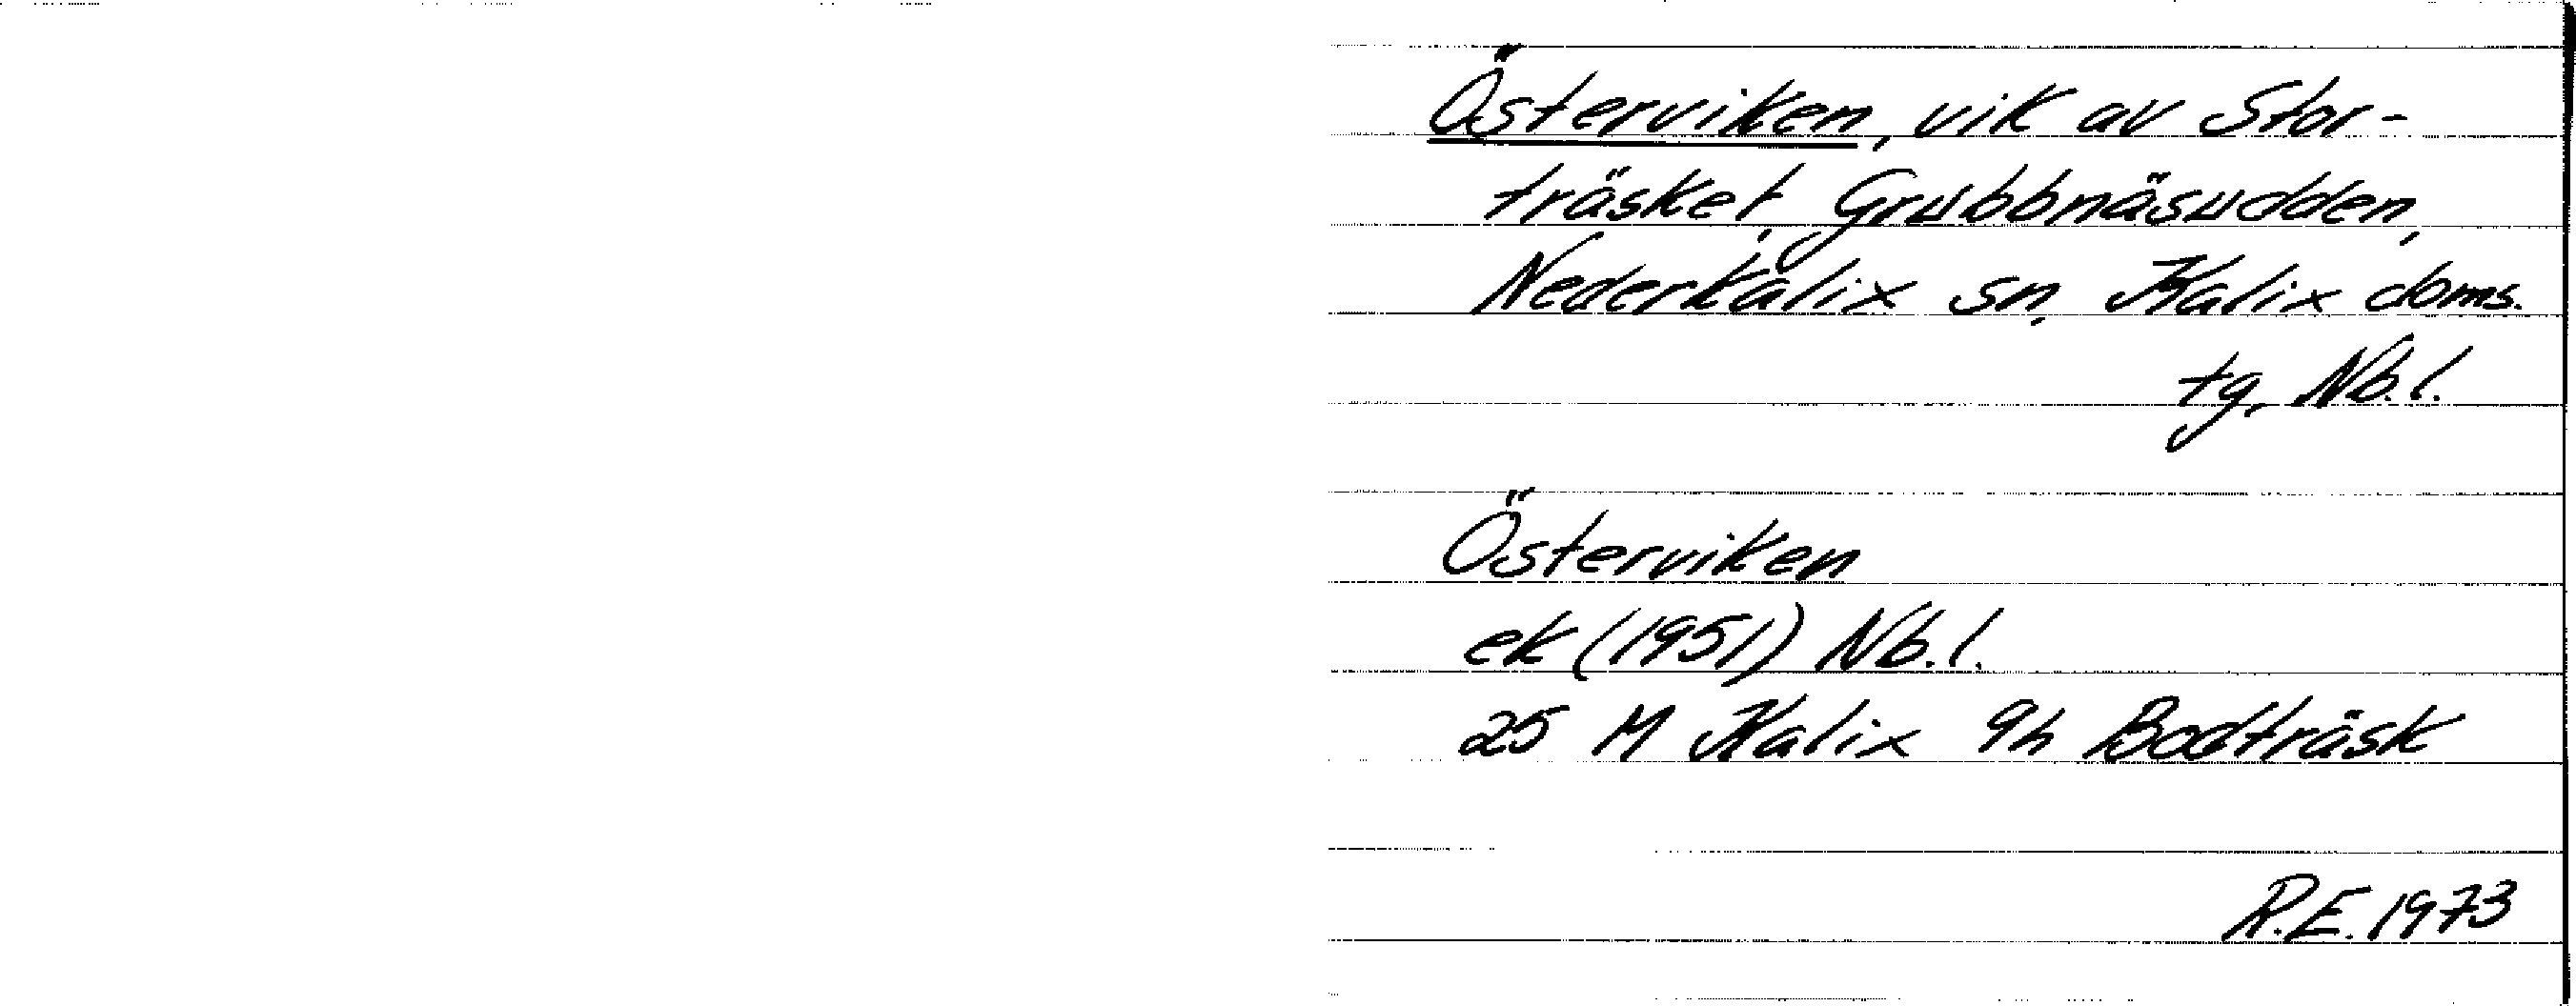 Österviken, vik av Stor-
träsket, Grubbnäsudden,
Nederkalix sn, Kalix doms.
tg, Nb.l.
Österviken
ek (1951) Nb.l.
25 M Kalix 9h Bodträsk
R.E. 1973